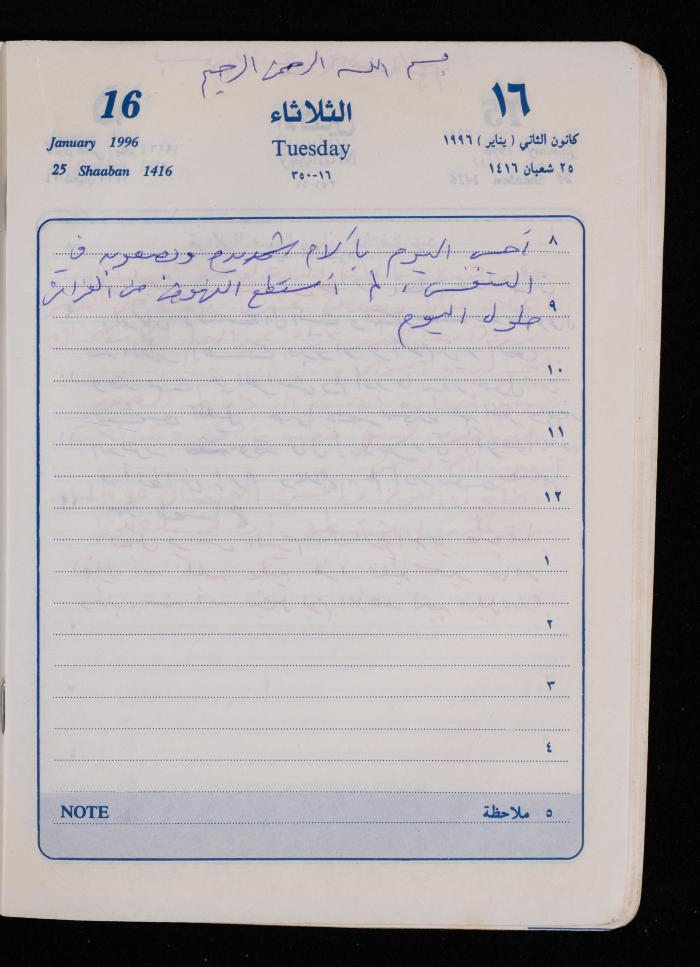 بسم الله الرحمن الرحيم
16 الثلاثاء ١٦
January 1996 Tuesday كانون الثاني ( يناير ) ١٩٩٦
25 Shaaban 1416 ١٦-٣٥٠ ٢٥ شعبان ١٤١٦
٨ أحس اليوم بآلام شديدة وبصعوبة في
التنفس ، لم أستطع النهوض من الفراش
٩ طول اليوم
١٠
١١
١٢
١
٢
٣
٤
NOTE ٥ ملاحظة